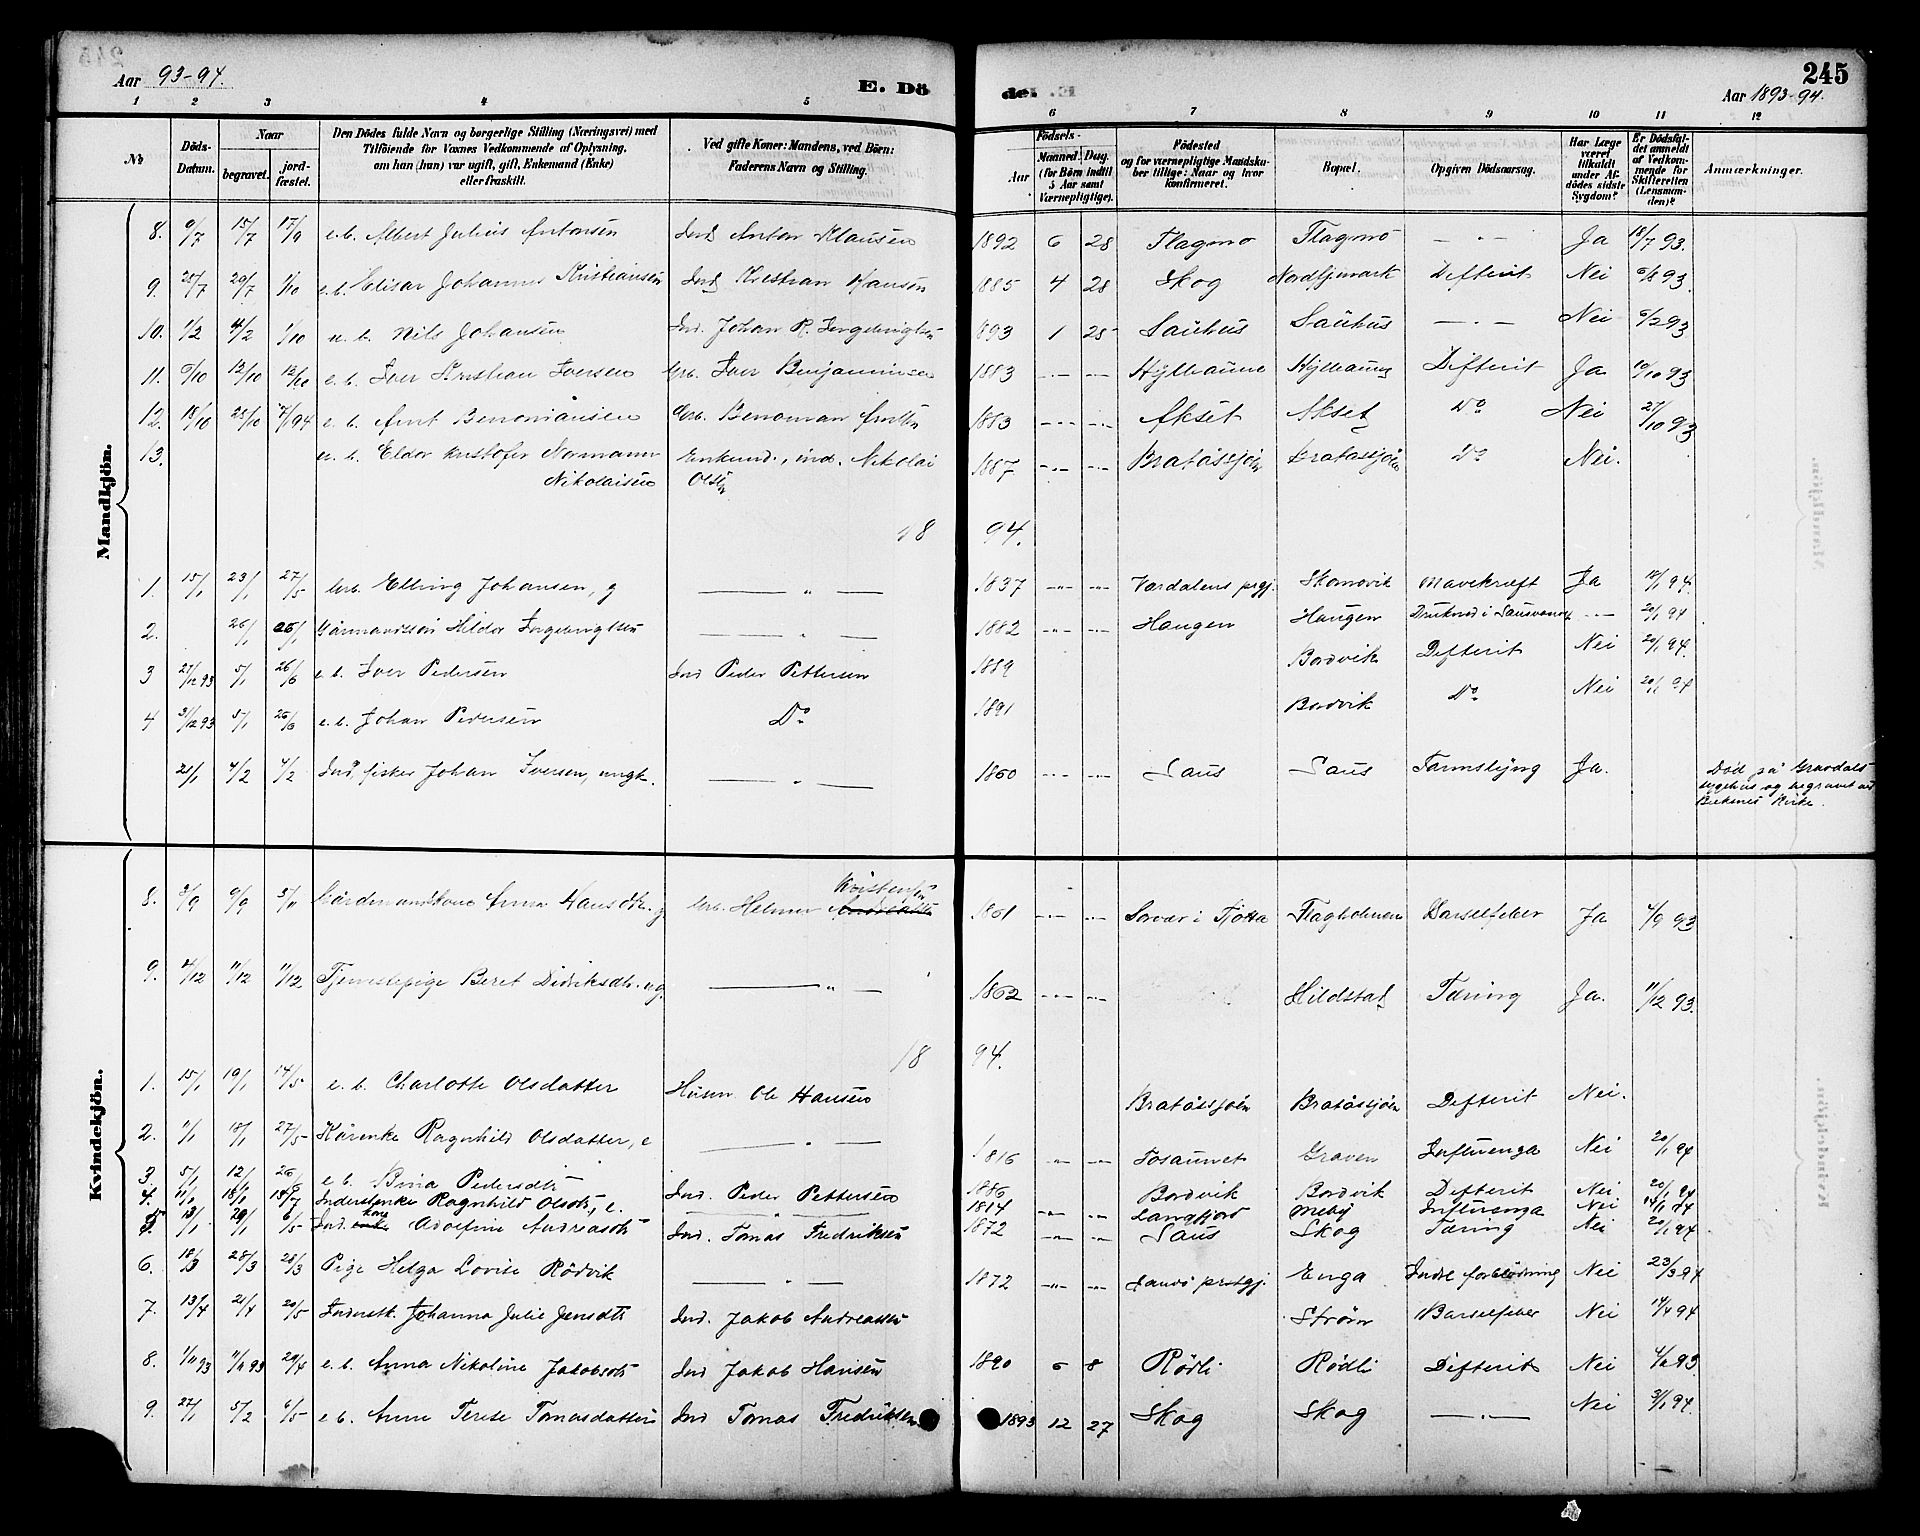 Aar 93-94.
E. Dö
de. E.
245
Aar 1893-94.
1 2 3 4 5 6 7 8 9 10 11 12
No
Döds-Datum.
Naar
begravet.
jordfæstet.
Den Dödes fulde Navn og borgerlige Stilling (Næringsvei) med
Tilföiende for Voxnes Vedkommende af Oplysning,
om han (hun) var ugift, gift, Enkemand (Enke)
eller fraskilt.
Ved gifte Koner: Mandens, ved Börn:
Faderens Navn og Stilling.
Födsels-
Aar
Maaned. Dag.
(for Börn indtil
5 Aar samt
Værnepligtige).
Födested
og for værnepligtige Mandskaber tillige: Naar og hvor
konfirmeret.
Bopæl.
Opgiven Dödsaarsag.
Har Læge
været
tilkaldt
under Afdödes sidste
Sygdom?
Er Dödsfaldet anmeldt
af Vedkommende for
Skifteretten
(Lensmanden)?
Anmærkninger.
Mandkjön.
8. 9/7 15/7 17/9 e.b. Albert Julius Antonsen Ind. Anton Klausen 1892 6 28 Flagmo Flagmo — " — Ja 18/7 93.
9. 25/7 29/7 1/10 e.b. Elisar Johannes Kristiansen Ind. Kristian Hansen 1885 4 28 Skog Difterit Nei 93.
10. 1/2 4/2 1/10 u.b. Nils Johansen Ind. Johan R. Ingebrigtsen 1893 1 25 Sauhus Sauhus — " — Nei 6/2 93
11. 9/10 12/10 12/10 e.b. Iver Kristian Iversen Grb. Iver Benjaminsen 1883 — " — Hylhaune Hylhaune Difterit Ja 10/10 93
12. 18/10 25/10 e.b. Arnt Benoniansen Grb. Benonian 1883 — " — Akset Akset Do Nei 27/10 93
13. u.b. Eldor Kristofer Normann Nikolaisen Enkemd., ind. Nikolai Olsen 1887 — " — Brataasjöen Brataasjöen Do Nei.
18 94.
1. 15/1 23/1 27/5 Grb. Elling Johansen, g — " — 1837 — " — Værdalens prgj. Skomovik Mavekræft Ja 18/1 94.
2. 26/1 Gaarmandssön Hildor Ingebrigtsen — " — 1882 — " — Haugen Haugen Druknet i Sausvannet — " — 20/1 94
3 27/12 93 5/1 26/6 e.b. Iver Pedersen Ind Peder Pettersen 1889 Bordvik Difterit Nei 20/1 94.
4 31/12 93 5/1 26/6 e.b. Johan Pedersen Do 1891 Bordvik Do Nei 20/1 94
21/1 4/2 4/2 Ind, fisker Johan Iversen, ungk. — " — 1860 — " — Saus Saus Tarmslyng Ja. Död på Gravdals sygehus og begravet ved Buksnes Kirke.
Kvindekjön.
8. 3/9 9/9 5/11 Gårdmandskone Anna Hansdtr. g Grb. Helmer Kristensen 1861 — " — Sorvær i Tjötta Flagholmen Barselfeber Ja 4/9 93
9. 4/12 11/12 11/12 Tjenestepige Beret Didriksdtr. ug. — " — 1862 — " — Hildstad Tæring Ja. 11/12 93.
18 94.
1. 15/1 19/1 14/5 e.b. Charlotte Olsdatter Husm Ole Hansen Brataasjöen Brataasjöen Difterit Nei.
2. 11/1 18/1 27/5 Kårenke Ragnhild Olsdatter, e — " — 1816 — " — Tosaunet Graven Influenga Nei 20/1 94
3. 5/1 12/1 26/6 e.b. Bina Pedersdtr Ind. Peder Pettersen 1886 Bordvik Bordvik Difterit Nei 20/1 94
4. 11/1 18/1 15/7 Inderstenke Ragnhild Olsdtr, e. — " — 1814 — " — Langfjord Meby Influenga Nei 94
5. 13/1 29/1 6/5 Ind. kone Adolfine Andreasdtr Ind. Tomas Fredriksen 1872 — " — Saus Skog Tæring Nei 20/1 94
6. 18/3 28/3 28/3 Pige Helga Lovise Rödvik — " — 1872 — " — prstgj. Enga Indre forblödning Nei 23/3 94
7. 13/4 21/4 20/5 Inderstk. Johanna Julie Jensdtr Ind. Jakob Andreassen Ström Barselfeber Nei 14/4 94
8. 1/11 93 11/11 93 29/4 e.b. Anna Nikoline Jakobsdtr Ind Jakob Hansen 1890 6 8 Rödli Rödli Difterit Nei 93
9. 27/1 5/2 6/5 e.b. Anne Terese Tomasdatter Ind Tomas Fredriksen 1893 12 27 Skog Skog — " — Nei 31/1 94.